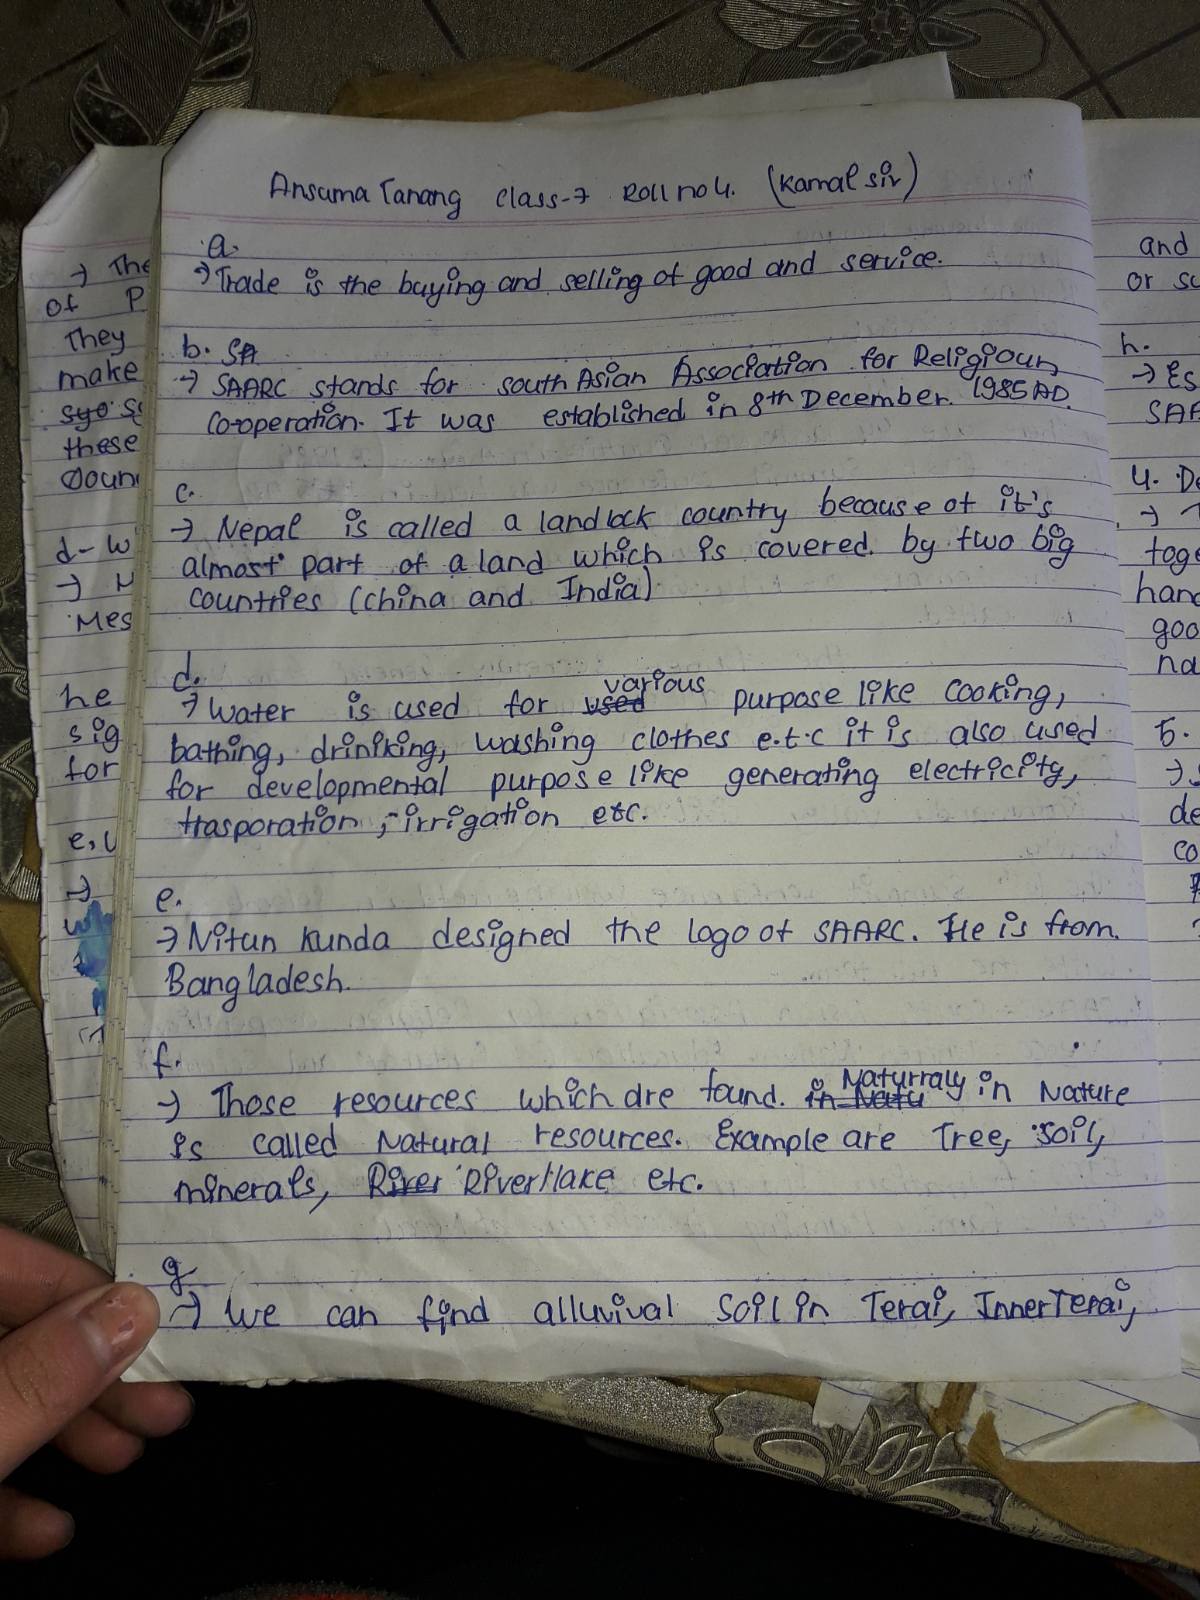 Ansuma Tamang Class-7 Roll no 4. (Kamal sir)
a.
→ Trade is the buying and selling of good and service.
b. SA
→ SAARC stands for south Asian Association for Religioun
Co-operation. It was established in 8th December 1985 AD.
c.
→ Nepal is called a landlock country because of it's
almost part of a land which is covered by two big
countries (china and India)
d.
→ Water is used for used various purpose like cooking,
bathing, drinking, washing clothes e.t.c it is also used
for developmental purpose like generating electricity,
trasporation, irrigation etc.
e.
→ Nitun Kunda designed the logo of SAARC. He is from
Bangladesh.
f.
→ Those resources which are found in Natu Naturraly in Nature
is called Natural resources. Example are Tree, soil,
minerals, River River/lake etc.
g
→ We can find alluvival soil in Terai, Inner Terai,
→ The
of P
They
make
syo
these
d- W
→
Mes
he
sig
for
e.
→
w
and
or su
h.
→ Es
SAA
4. De
→
toge
hand
goo
na
5.
→
de
co